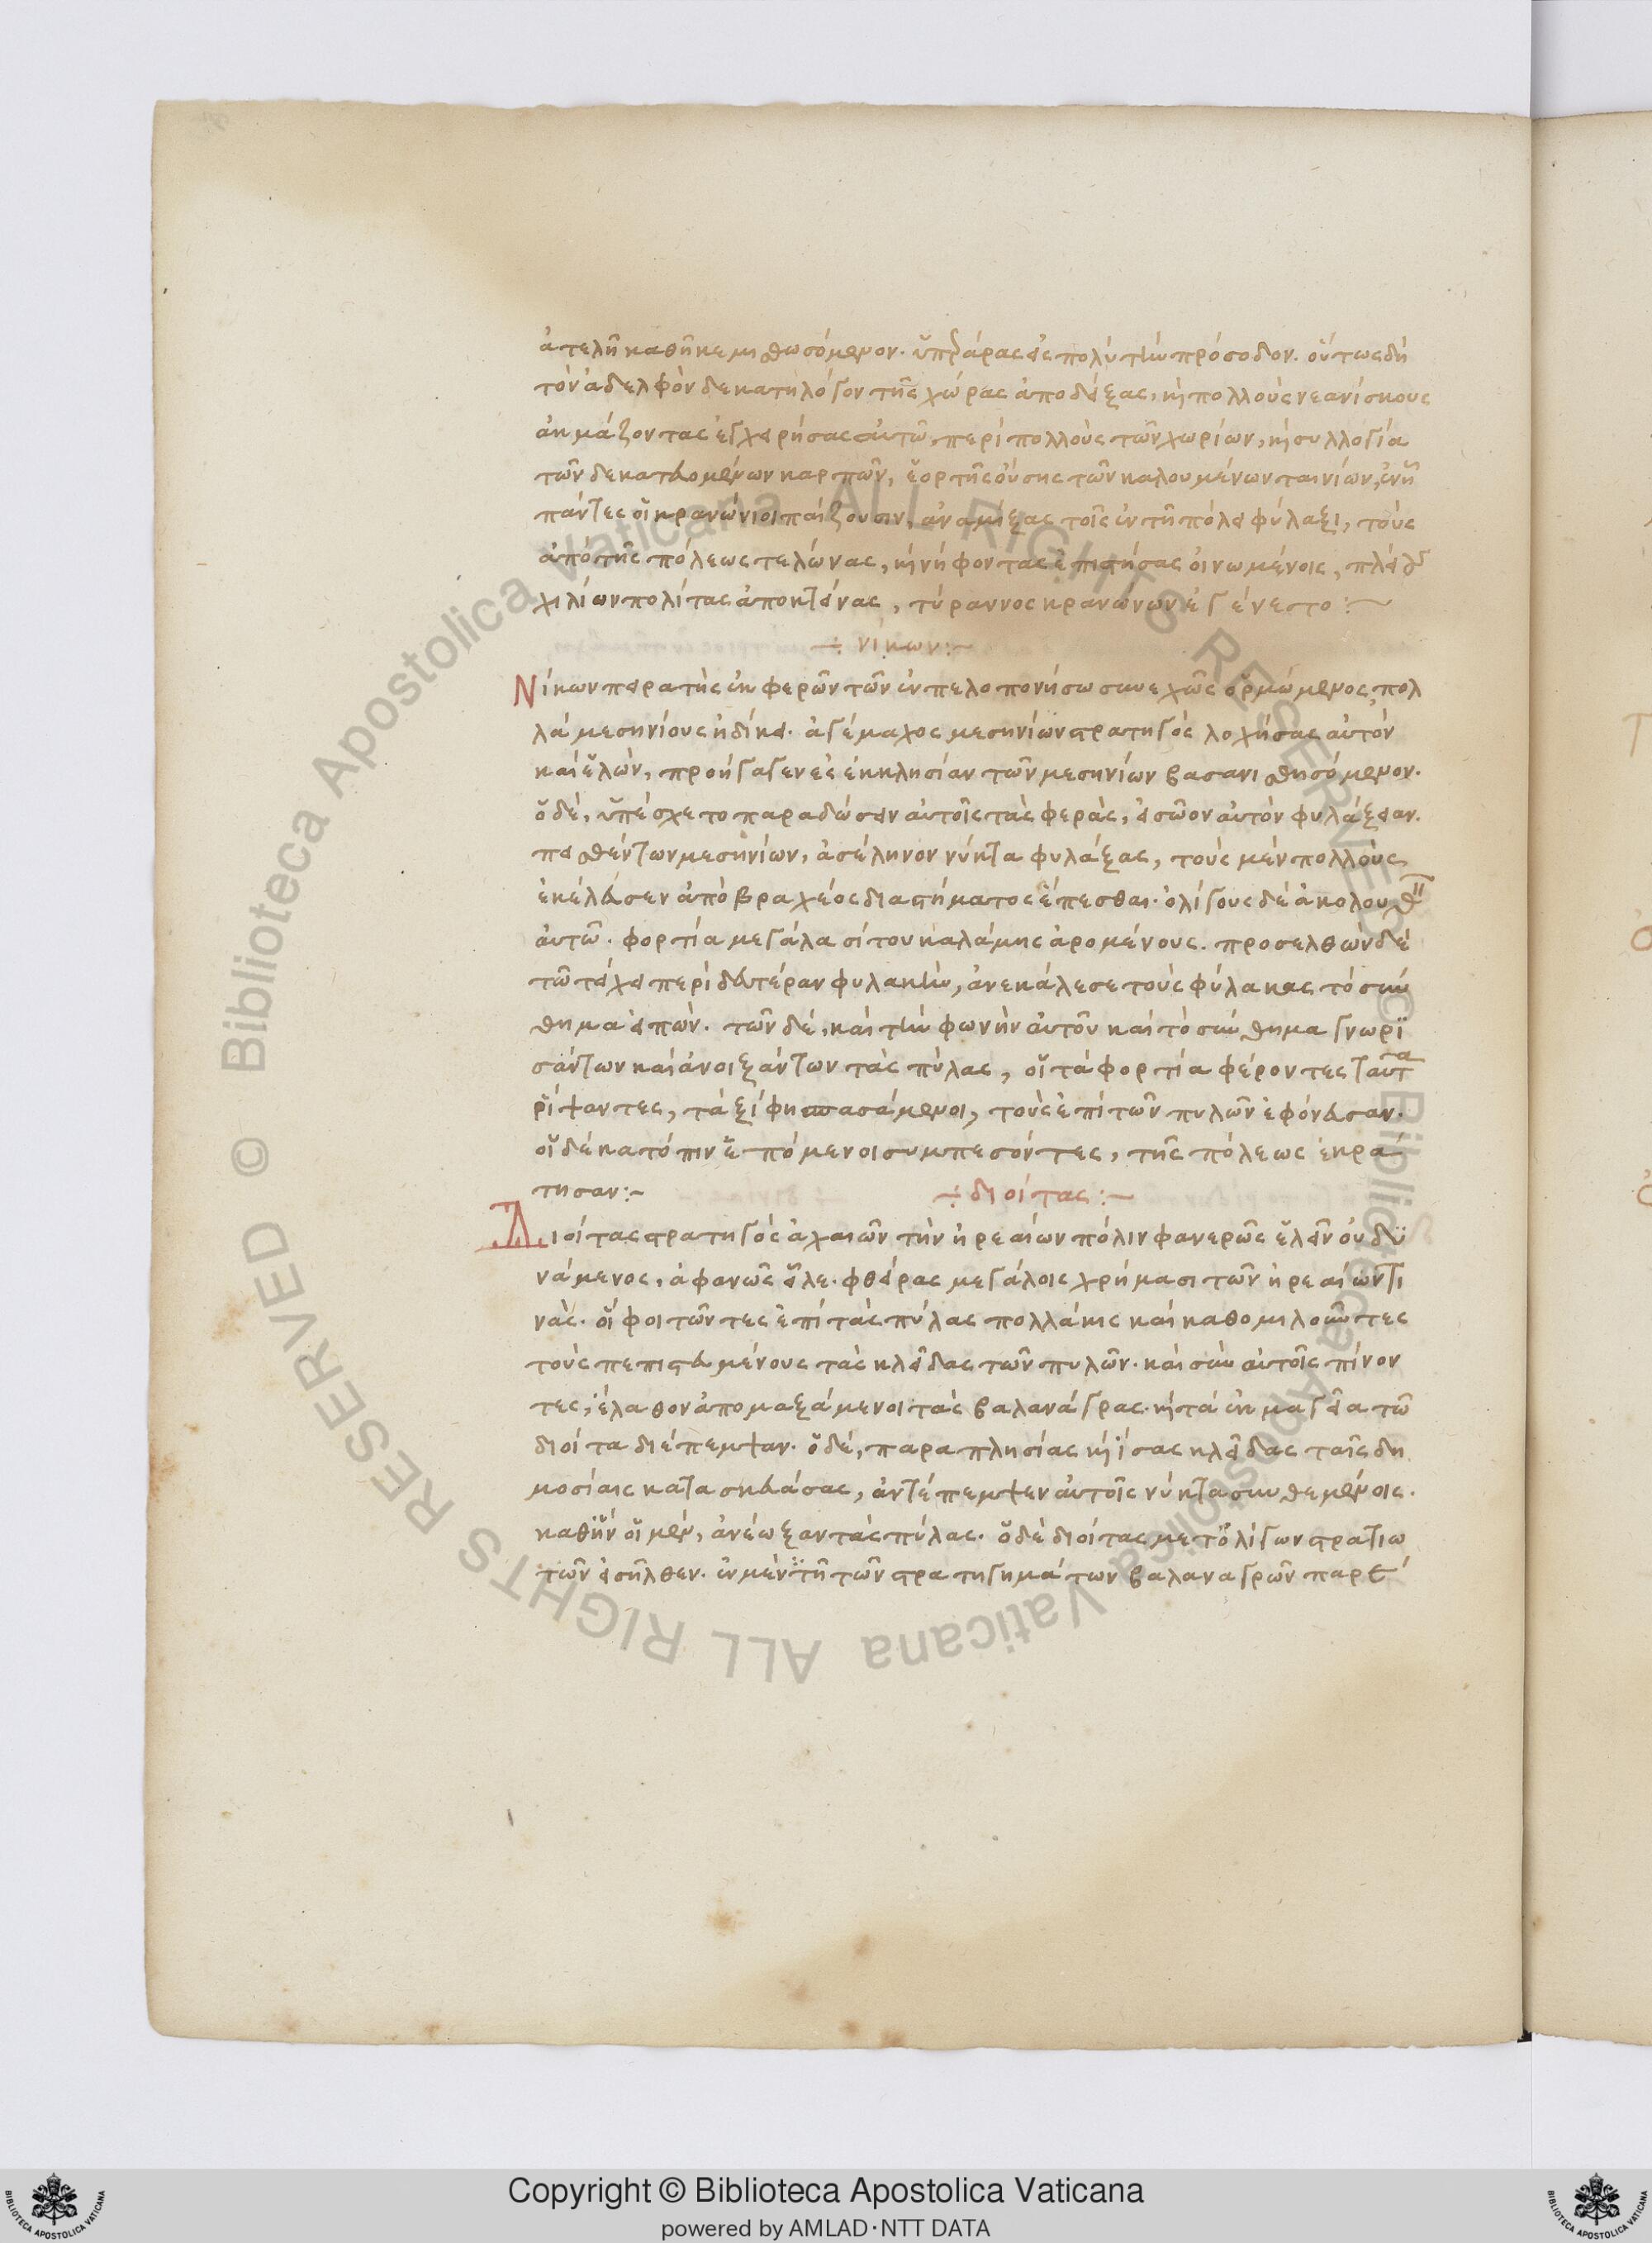 ἀτελῆ καθῆκε μισθωσόμενον. ὑπεράρας εἰς πολὺ τὴν πρόσοδον. οὕτως δὴ
τὸν ἀδελφὸν δεκατηλόγον τῆς χώρας ἀποδείξας, καὶ πολλοὺς νεανίσκους
ἀκμάζοντας ἐγχειρήσας αὐτῶ, περὶ πολλοὺς τῶν χωρίων, καὶ συλλογία
τῶν δεκατευομένων καρπῶν, ἑορτῆς οὔσης τῶν καλουμένων ταινίων, ἐν ἧ
πάντες οἱ κρανώνιοι παίζουσιν, ἀναμίξας τοῖς ἐν τῆ πόλει φύλαξι, τοὺς
ἀπὸ τῆς πόλεως τελώνας, καὶ νήφοντας ἐπιστήσας οἰνωμένοις, πλείους
χιλίων πολίτας ἀποκτείνας, τύραννος κρανώνων ἐγένετο :~
÷ νίκων :~
Νίκων πειρατὴς ἐκ φερῶν τῶν ἐν πελοποννήσω συνεχῶς ὁρμώμενος, πολ
λὰ μεσηνίους ἠδίκει. ἀγέμαχος μεσηνίων στρατηγὸς λοχήσας αὐτὸν
καὶ ἑλὼν, προήγαγεν εἰς ἐκκλησίαν τῶν μεσηνίων βασανισθησόμενον.
ὁ δὲ, ὑπέσχετο παραδώσειν αὐτοῖς τὰς φερὰς, εἰ σῶον αὐτὸν φυλάξειαν.
πεισθέντων μεσηνίων, ἀσέληνον νύκτα φυλάξας, τοὺς μὲν πολλοὺς
ἐκέλευσεν ἀπὸ βραχέος διαστήματος ἕπεσθαι. ὀλίγους δὲ ἀκολουθεῖν
αὐτῶ. φορτία μεγάλα σίτου καλάμης ἀρομένους. προσελθὼν δὲ
τῶ τείχει περὶ δευτέραν φυλακὴν, ἀνεκάλεσε τοὺς φύλακας τὸ σύν
θημα εἰπών. τῶν δὲ, καὶ τὴν φωνὴν αὐτοῦ καὶ τὸ σύνθημα γνωρι
σάντων καὶ ἀνοιξάντων τὰς πύλας, οἱ τὰ φορτία φέροντες ταῦτα
ῥίψαντες, τὰ ξίφη σπασάμενοι, τοὺς ἐπὶ τῶν πυλῶν ἐφόνευσαν.
οἱ δὲ κατόπιν ἑπόμενοι συμπεσόντες, τῆς πόλεως ἐκρά
τησαν :~ ÷ διοίτας :~
Διοίτας στρατηγὸς ἀχαιῶν τὴν ἡρεαίων πόλιν φανερῶς ἑλεῖν οὐ δυ
νάμενος, ἀφανῶς εἷλε. φθείρας μεγάλοις χρήμασι τῶν ἡρεαίων τι
νὰς. οἳ φοιτῶντες ἐπὶ τὰς πύλας πολλάκις καὶ καθομιλοῦντες
τοὺς πεπιστευμένους τὰς κλεῖδας τῶν πυλῶν. καὶ σὺν αὐτοῖς πίνον
τες, ἔλαθον ἀπομαξάμενοι τὰς βαλανάγρας. καὶ τὰ ἐκμαγεῖα τῶ
διοίτα διέπεμψαν. ὁ δὲ, παραπλησίας καὶ ἴσας κλεῖδας ταῖς δη
μοσίαις κατασκευάσας, ἀντέπεμψεν αὐτοῖς νύκτα συνθεμένοις.
καθ' ἣν οἱ μὲν, ἀνέωξαν τὰς πύλας. ὁ δὲ διοίτας μετ' ὀλίγων στρατιω
τῶν εἰσῆλθεν. ἐν μὲν τῆ τῶν στρατηγημάτων βαλαναγρῶν παρευ
Copyright © Biblioteca Apostolica Vaticana
powered by AMLAD·NTT DATA